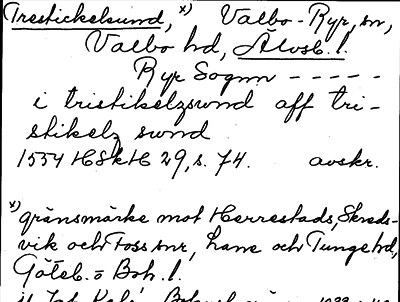 Trestickelsund, x) Valbo-Ryr, sn,
Valbo hd, Älvsb. l.
Ryr Sognn - - - - -
i tristikelzswnd aff tri-
stikelz swnd
1554 HSkH 29, s. 74. avskr.
x) gränsmärke mot Herrestads, Skreds-
vik och Foss snr, Lane och Tunge hd,
Göteb. o Boh. l.